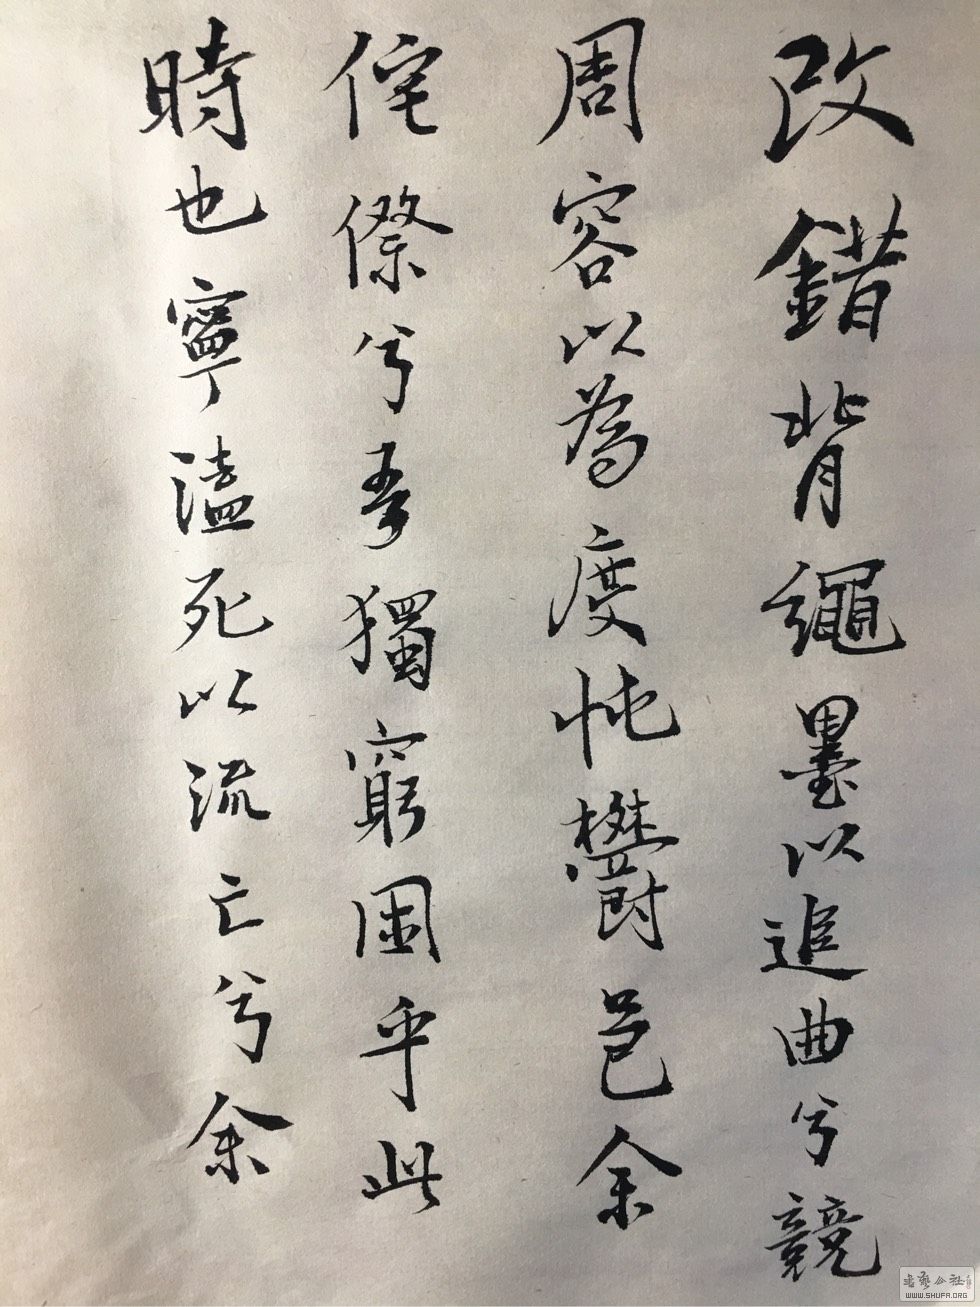 改錯背繩墨以追曲兮競
周容以為度忳鬱邑余
侘傺兮吾獨窮困乎此
時也寧溘死以流亡兮余
書艺公社
WWW.SHUFA.ORG